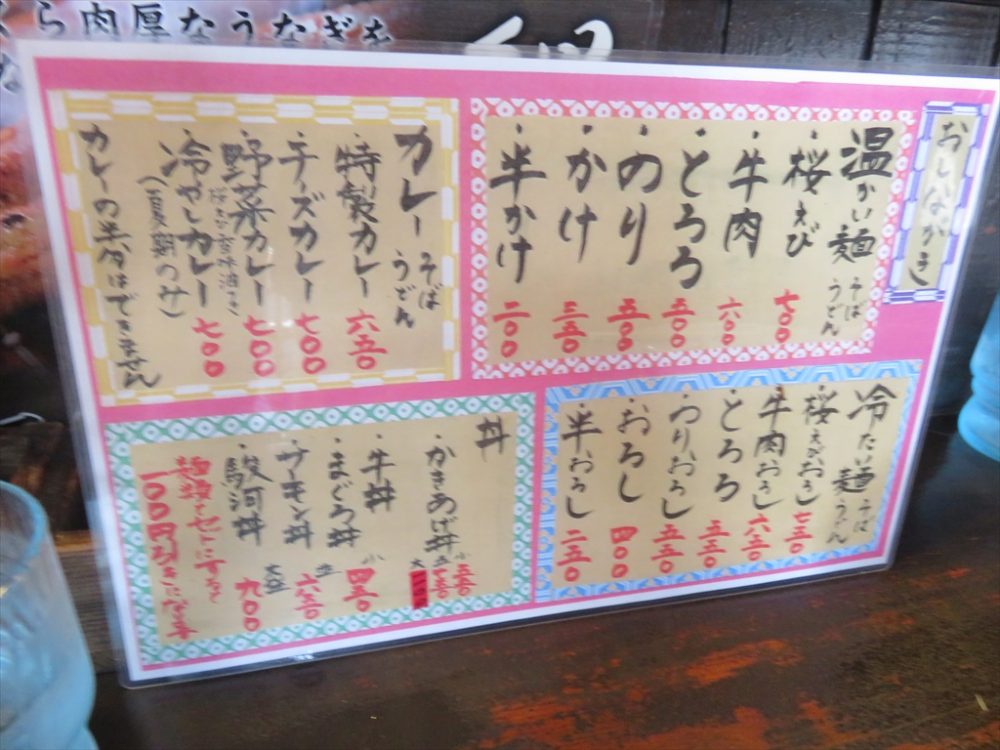 ら肉厚なうなぎを
おしながき
温かい麺 そば うどん
・桜えび 七〇〇
・牛肉 六〇〇
・とろろ 五〇〇
・のり 五〇〇
・かけ 三五〇
・半かけ 二〇〇
カレー そば うどん
・特製カレー 六五〇
・チーズカレー 七〇〇
・野菜カレー 七〇〇
・冷やしカレー 七〇〇
(夏期のみ)
カレーの半分はできません
冷たい麺 そば うどん
・桜えびおろし 七五〇
・牛肉おろし 六五〇
・とろろ 五五〇
・のりおろし 五五〇
・おろし 四〇〇
・半おろし 二五〇
丼
・かきあげ丼
・牛丼
・まぐろ丼
・サーモン丼
・駿河丼
小 四五〇
並 六五〇
大盛 九〇〇
麺類とセットにすると
一〇〇円引きになります